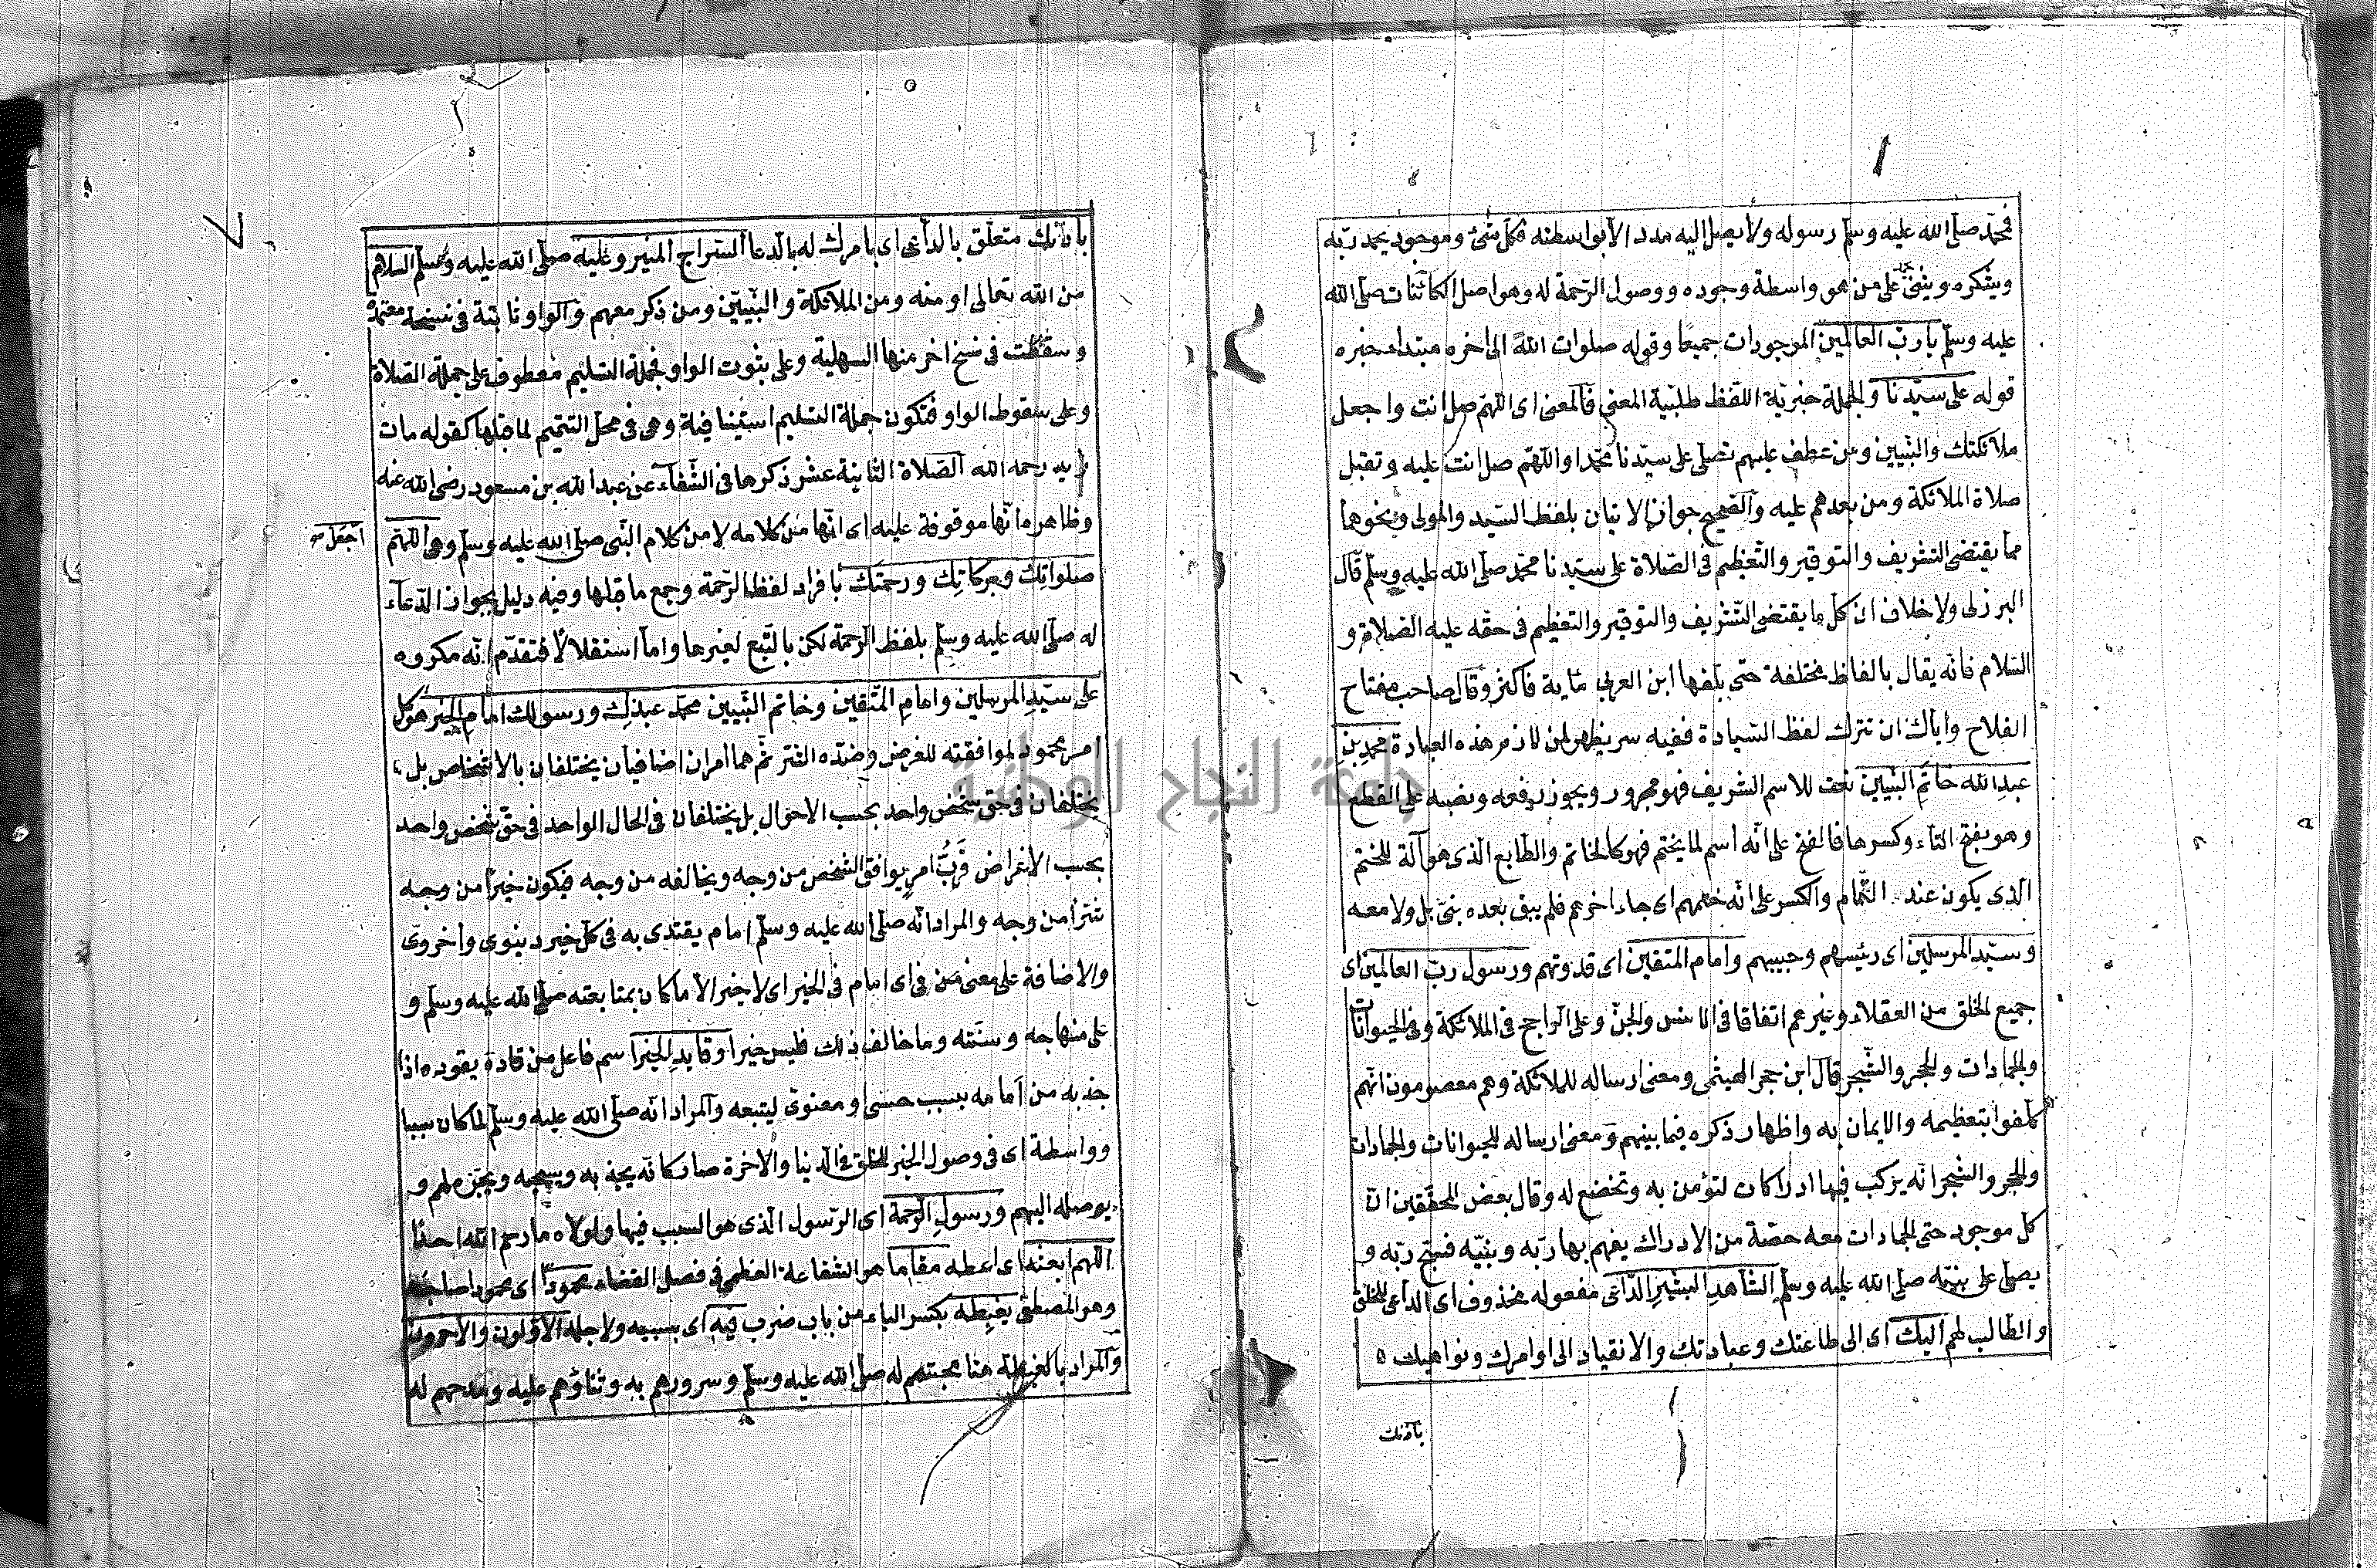 فمحمّد صلى الله عليه وسلم رسوله ولا يصل اليه مدد الا بواسطته فكل شئ وموجود يحمد ربّه
ويشكره ويثنى على من هو واسطة وجوده ووصول الرّحمة له وهو اصل الكائنات صلى الله
عليه وسلم يا ربّ العالمين الموجودات جميعًا وقوله صلوات الله الى اخره مبتداء خبره
قوله على سيّدنا والجملة خبريّة اللفظ طلبيّة المعنى فالمعنى اى اللهمّ صل انت واجعل
ملائكتك والنّبيين ومن عطف عليهم تصلى على سيّدنا محمّد او اللهمّ صل انت عليه وتقبل
صلاة الملائكة ومن بعدهم عليه والصّحيح جواز الاتيان بلفظ السّيد والمولى ونحوهما
ممّا يقتضى التشريف والتوقير والتّعظيم فى الصّلاة على سيّدنا محمّد صلى الله عليه وسلم قال
البرزلى ولا خلاف ان كلّ ما يقتضى التّشريف والتوقير والتعظيم فى حقّه عليه الصّلاة و
السّلام فانّه يقال بالفاظ مختلفة حتى بلّغها ابن العربى مائة فاكثر وقال صاحب مفتاح
الفلاح وايّاك ان تترك لفظ السّيادة ففيه سر يظهر لمن لازم هذه العبادة محمّد بن
عبد الله خاتم النّبيّين نعت للاسم الشّريف فهو مجرور ويجوز رفعه ونصبه على القطع
وهو بفتح التّاء وكسرها فالفتح على انّه اسم لما يختم فهو كالخاتم والطّابع الّذى هو آلة للختم
الّذى يكون عند التّمام والكسر على انّه ختمهم اى جاء اخرهم فلم يبق بعده نبىّ بل ولا معه
وسيّد المرسلين اى رئيسهم وحبيبهم وامام المتّقين اى قدوتهم ورسول ربّ العالمين اى
جميع الخلق من العقلاء وغيرهم اتفاقا فى الانس والجنّ وعلى الرّاجح فى الملائكة وفى الحيوانات
والجمادات والحجر والشّجر قال ابن حجر الهيثمى ومعنى ارساله للملائكة وهم معصومون انّهم
كلّفوا بتعظيمه والايمان به واظهار ذكره فيما بينهم ومعنى ارساله للحيوانات والجمادات
والحجر والشجر انّه يركب فيها ادراكات لتؤمن به وتخضع له وقال بعض المحقّقين انّ
كل موجود حتى الجمادات معه حصّة من الادراك يفهم بها ربّه ونبيّه فيسبّح ربّه و
يصلى على نبيّه صلى الله عليه وسلم الشّاهد البشير الدّاعى مفعوله محذوف اى الداعى للخلق
والطّالب لهم اليك اى الى طاعتك وعبادتك والانقياد الى اوامرك ونواهيك
باذنك
باذنك متعلّق بالدّاعى اى بامرك له بالدّعا السّراج المنير وعليه صلى الله عليه وسلم السلام
من الله تعالى او منه ومن الملائكة والنّبيّين ومن ذكر معهم والواو ثابتة فى نسخة معتمدة
وسقطت فى نسخ اخر منها السهلية وعلى ثبوت الواو فجملة التسليم معطوف على جملة الصّلاة
وعلى سقوط الواو فتكون جملة التسليم استينافية وهى فى محل التتميم لما قبلها كقوله مات
زيد رحمه الله الصّلاة الثّانية عشر ذكرها فى الشّفاء عن عبد الله بن مسعود رضى الله عنه
وظاهره انّها موقوفة عليه اى انّها من كلامه لا من كلام النّبى صلى الله عليه وسلم وهى اللّهمّ
اجعل
صلواتك وبركاتك ورحمتك بافراد لفظ الرّحمة وجمع ما قبلها وفيه دليل بجواز الدّعاء
له صلى الله عليه وسلم بلفظ الرّحمة لكن بالتّبع لغيرها وامّا استقلالا فتقدّم انّه مكروه
على سيّد المرسلين وامام المتّقين وخاتم النّبيين محمّد عبدك ورسولك امام الخير هو كل
امر محمود لموافقته للغرض وضدّه الشّر ثمّ هما امران اضافيان يختلفان بالاشخاص بل
يختلفان فى حق شخص واحد بحسب الاحوال بل يختلفان فى الحال الواحد فى حق شخص واحد
بحسب الاغراض فربّ امر يوافق الشّخص من وجه ويخالفه من وجه فيكون خيرًا من وجه
شرّا من وجه والمراد انّه صلى الله عليه وسلم امام يقتدى به فى كلّ خير دينوى واخروى
والاضافة على معنى من فى اى امام فى الخير اى لا خير الا ما كان بمتابعته صلى الله عليه وسلم و
على منهاجه وسنّته وما خالف ذلك فليس خيرا وقايد الخير اسم فاعل من قاده يقوده اذا
جذبه من امامه بسبب حسّى او معنوىّ ليتبعه والمراد انّه صلى الله عليه وسلم لما كان سببا
وواسطة اى فى وصول الخير للخلق فى الدّنيا والاخرة صار كانّه يجذبه ويسحبه ويجرّه لهم و
يوصله اليهم ورسول الرّحمة اى الرّسول الّذى هو السبب فيها ولولاه ما رحم الله احدًا
اللّهمّ ابعثه اى اعطه مقاما هو الشفاعة العظمى فى فصل القضاء محمودا اى محمودا صاحبه
وهو المصطفى يغبطه بكسر الباء من باب ضرب فيه اى بسببه ولاجله الاوّلون والآخرون
والمراد بالغبطة هنا محبّتهم له صلى الله عليه وسلم وسرورهم به وثناؤهم عليه ومدحهم له
جامعة النجاح الوطنية